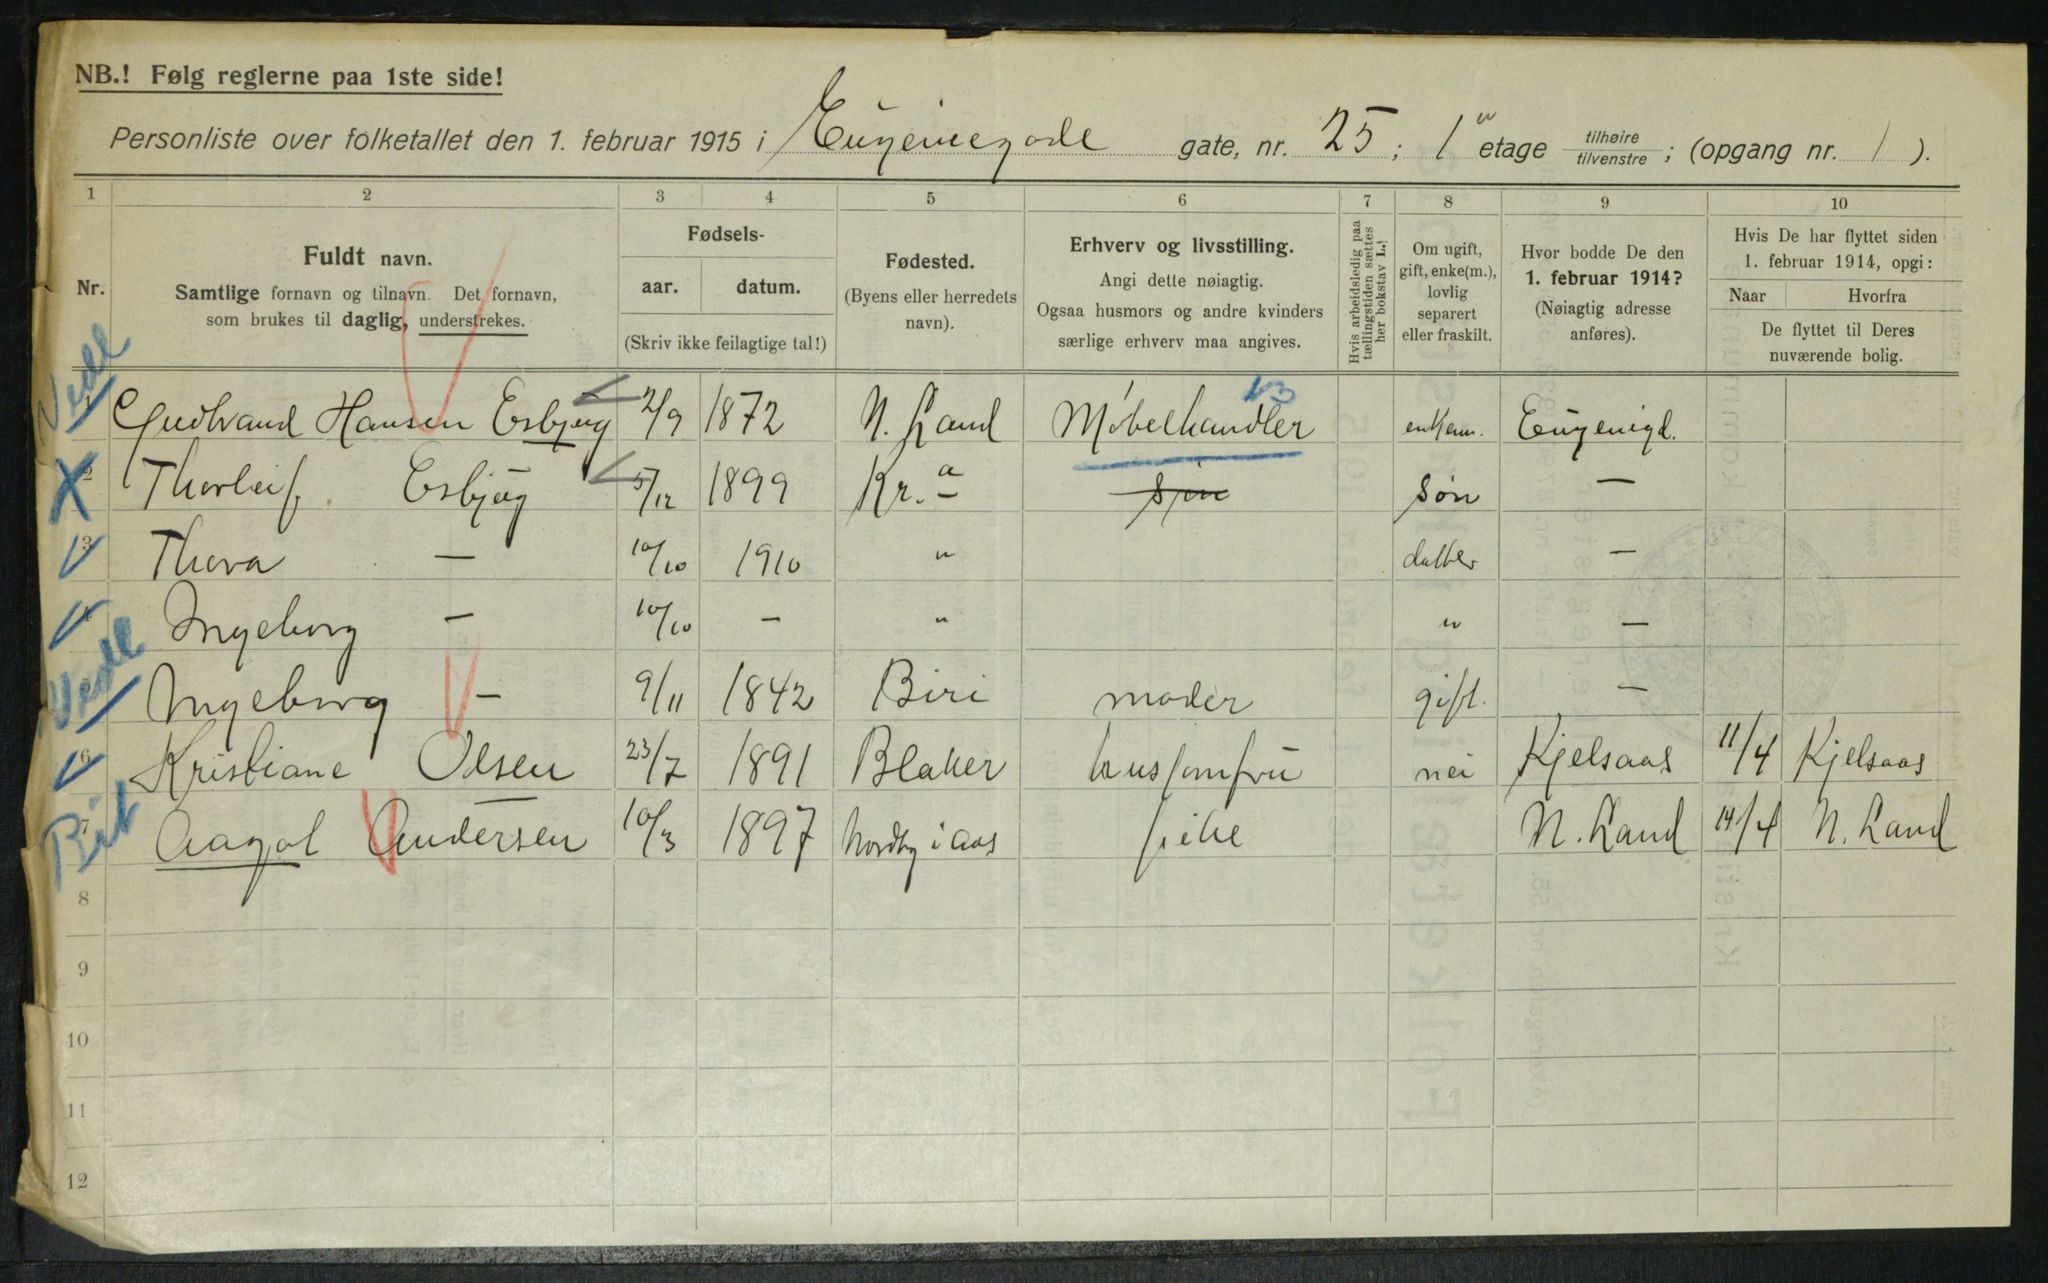 NB.! Følg reglerne paa 1ste side!
Personliste over folketallet den 1. februar 1915 i Eugeniegade gate, nr. 25; 1ⁿ etage tilhøire / tilvenstre; (opgang nr. 1).
1 2 3 4 5 6 7 8 9 10
Nr.
Fuldt navn.
Samtlige fornavn og tilnavn. Det fornavn,
som brukes til daglig, understrekes.
Fødsels-
aar. datum.
(Skriv ikke feilagtige tal!)
Fødested.
(Byens eller herredets
navn).
Erhverv og livsstilling.
Angi dette nøiagtig.
Ogsaa husmors og andre kvinders
særlige erhverv maa angives.
Hvis arbeidsledig paa
tællingstiden sættes
her bokstav L.)
Om ugift,
gift, enke(m.),
lovlig
separert
eller fraskilt.
Hvor bodde De den
1. februar 1914?
(Nøiagtig adresse
anføres).
Hvis De har flyttet siden
1. februar 1914, opgi:
Naar Hvorfra
De flyttet til Deres
nuværende bolig.
1 Gudbrand Hansen Esbjug 2/9 1872 N. Land Møbelhandler enkem. Eugenigd.
2 Thorleif Esbjug 5/12 1899 Kr.a søn —
3 Thora — 10/10 1910 " datter —
4 Ingeborg — 10/10 — " " —
Ingeborg — 9/11 1842 Biri moder gift. —
6 Kristiane Olsen 23/7 1891 Blaker husjomfru nei Kjelsaas 11/4 Kjelsaas
7 Aagot Andersen 10/3 1897 Nordby i Aas pike N. Land 14/4 N. Land
8
9
10
11
12